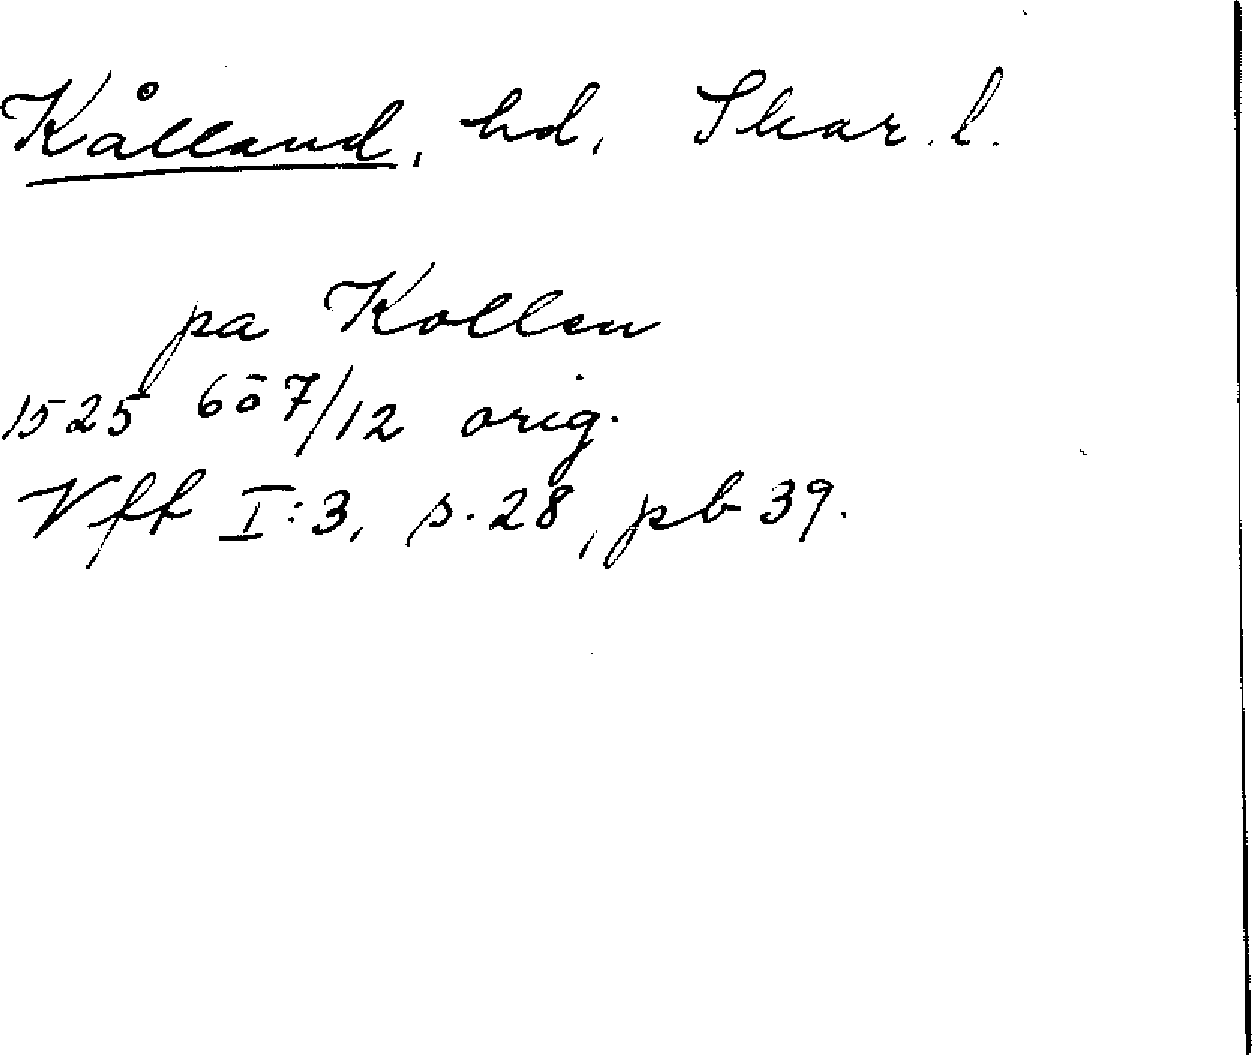 Kålland, hd, Skar. l.
pa Kollen
1525 6ō 7/12 orig.
Vff I:3, s. 28, pb 39.